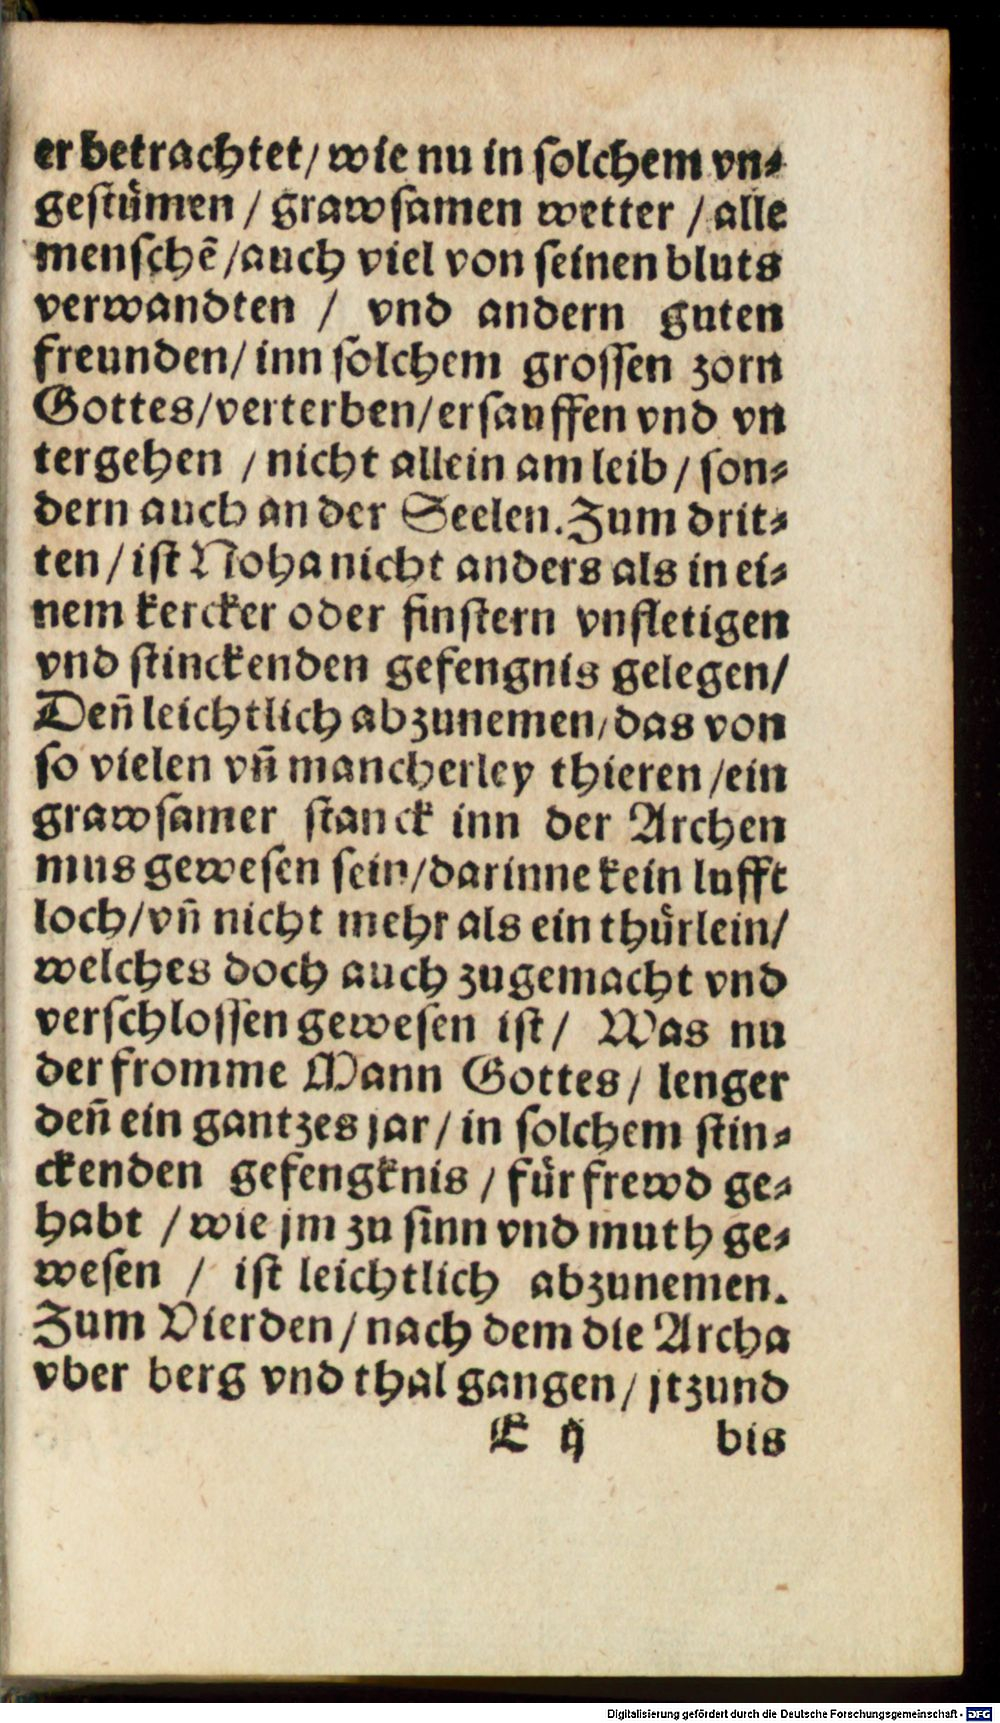 er betrachtet/ wie nu in solchem vn⸗
gestümen / grawsamen wetter / alle
menschẽ /auch viel von seinen bluts
verwandten / vnd andern guten
freunden/ inn solchem grossen zorn
Gottes/verterben/ersauffen vnd vn
tergehen / nicht allein am leib / son⸗
dern auch an der Seelen. Zum drit⸗
ten / ist Noha nicht anders als in ei⸗
nem kercker oder finstern vnfletigen
vnd stinckenden gefengnis gelegen/
Deñ leichtlich abzunemen/das von
so vielen vñ mancherley thieren /ein
grawsamer stanck inn der Archen
mus gewesen sein/darinne kein lufft
loch/vñ nicht mehr als ein thürlein/
welches doch auch zugemacht vnd
verschlossen gewesen ist/ Was nu
der fromme Mann Gottes/ lenger
deñ ein gantzes jar/ in solchem stin⸗
ckenden gefengknis / für frewd ge⸗
habt / wie jm zu sinn vnd muth ge⸗
wesen / ist leichtlich abzunemen.
Zum Vierden/nach dem die Archa
vber berg vnd thal gangen/ jtzund
E ij bis
Digitalisierung gefördert durch die Deutsche Forschungsgemeinschaft - DFG